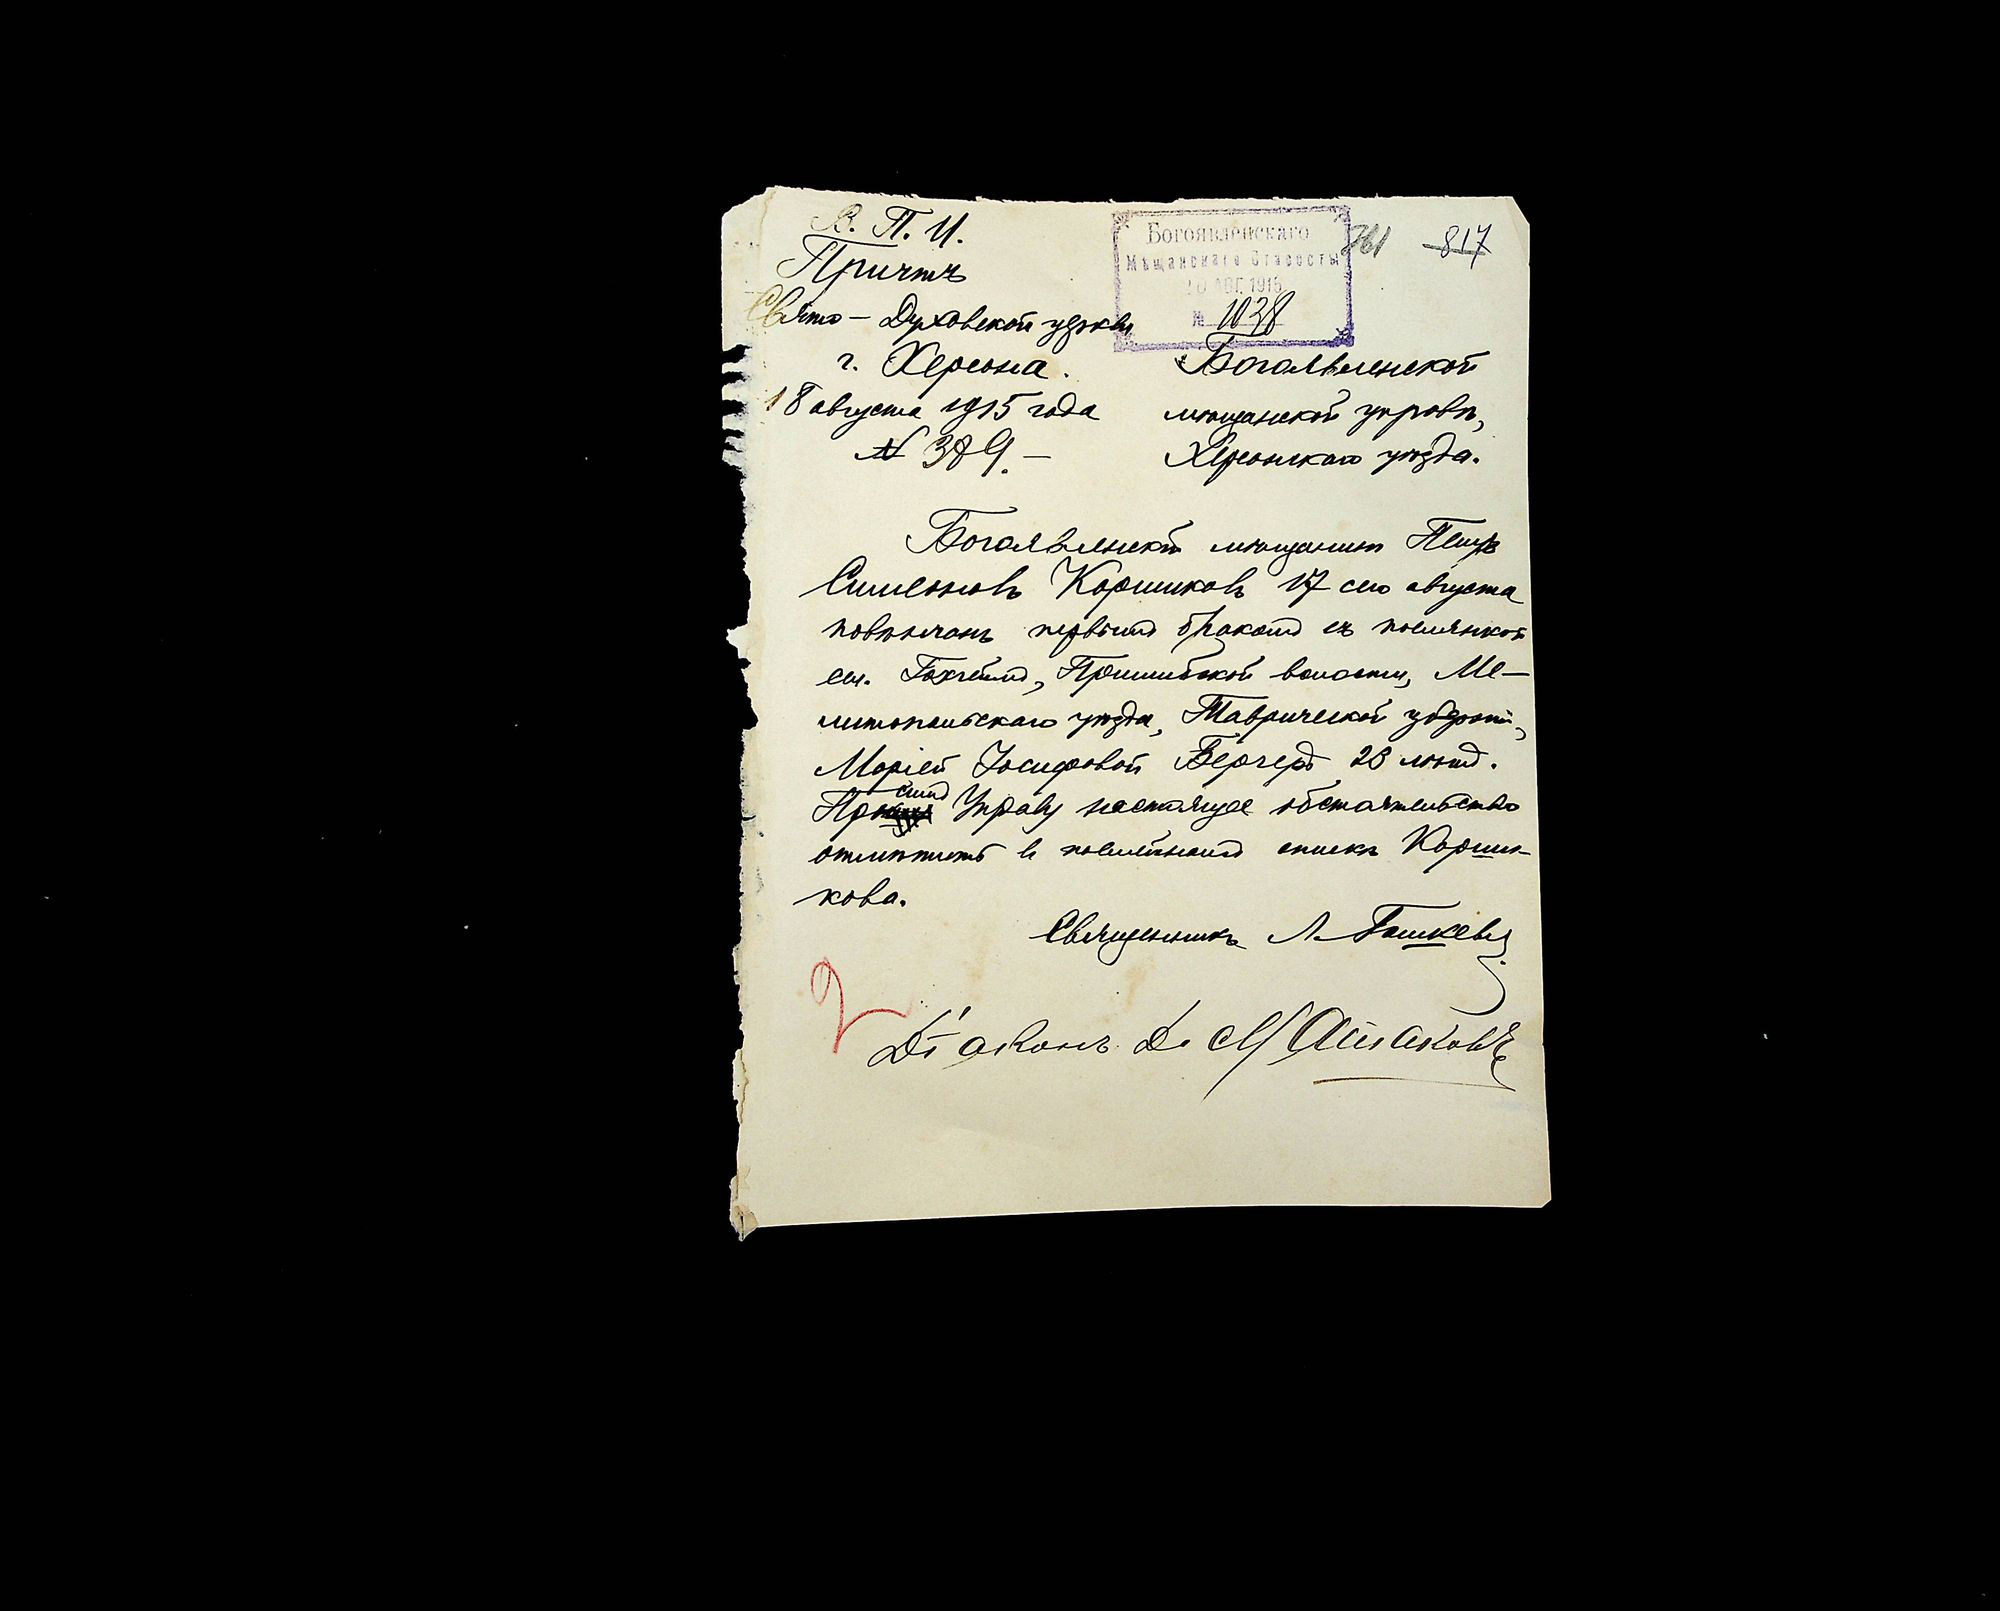 В. П. И.
Причтъ
Свято-Духовской церкви
г. Херсона.
18 августа 1915 года
№ 389.-
Богоявленскаго
Мѣщанскаго Старосты
20 АВГ. 1915
№ 1038
761
817
Богоявленской
мѣщанской управѣ,
Херсонскаго уѣзда.
Богоявленскій мѣщанинъ Петръ
Симеоновъ Коршиковъ 17 сего августа
повѣнчанъ первымъ бракомъ съ поселянкой
сел. Гохгеймъ, Пришибской волости, Ме-
литопольскаго уѣзда, Таврической губерніи,
Маріей Іосифовой Бергеръ 28 лѣтъ.
Просимъ Управу настоящее обстоятельство
отмѣтить въ посемейномъ спискѣ Корши-
кова.
Священникъ Л.
2
Діаконъ Д.